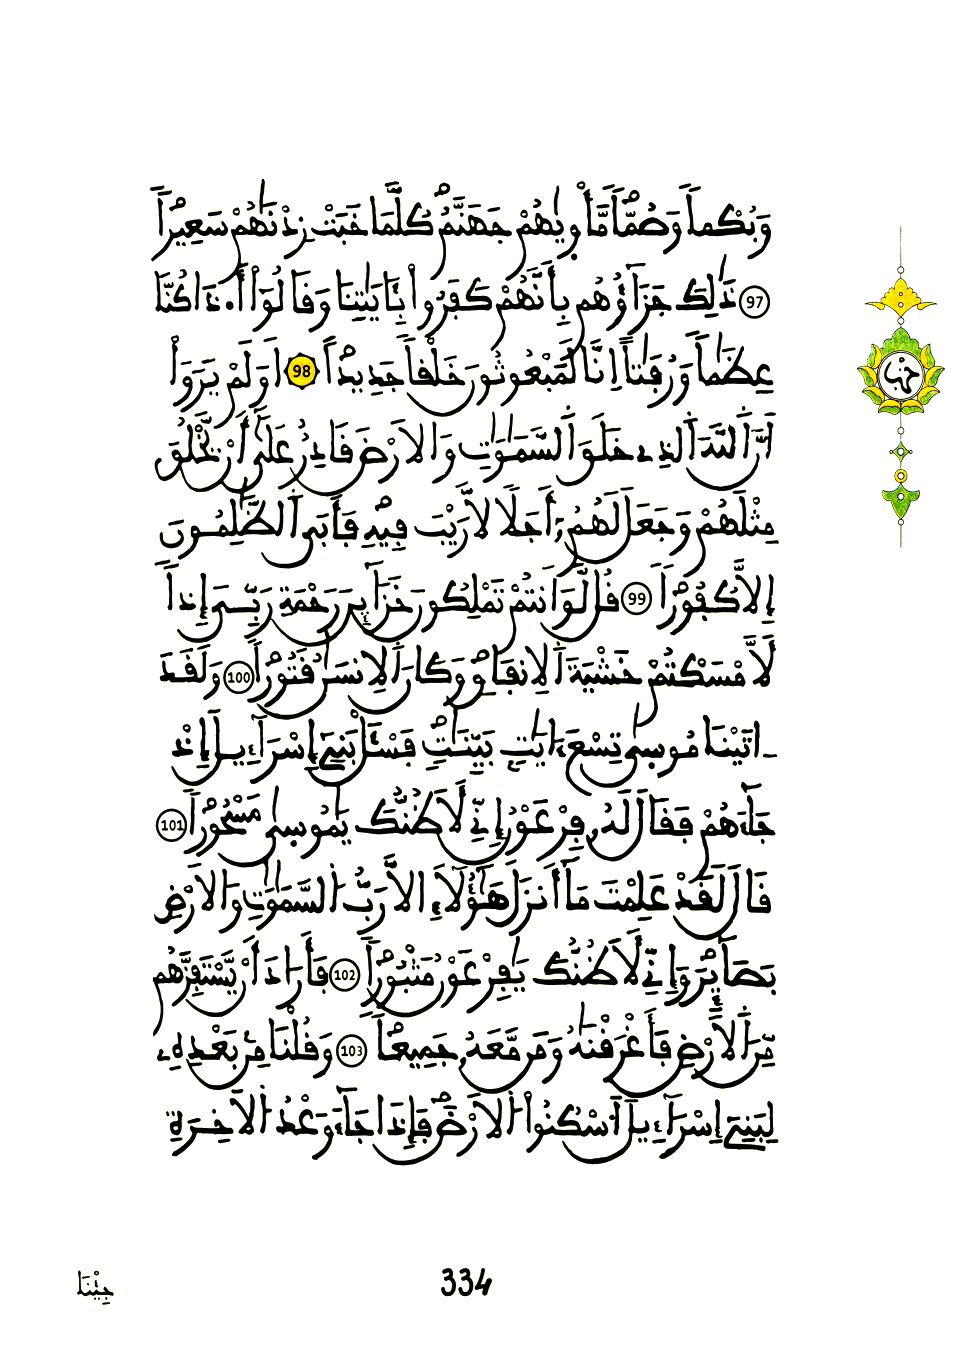 وَبُكْماً وَصُمّاًۖ مَّأْو۪يٰهُمْ جَهَنَّمُۖ كُلَّمَا خَبَتْ زِدْنَٰهُمْ سَعِيراًۖ
97 ذَٰلِكَ جَزَآؤُهُم بِأَنَّهُمْ كَفَرُوا۟ بِـَٔايَٰتِنَا وَقَالُوٓا۟ أَ.ذَا كُنَّا
عِظَٰماً وَرُفَٰتاً اِنَّا لَمَبْعُوثُونَ خَلْقاً جَدِيداًۖ 98 اَوَلَمْ يَرَوَا۟
اَنَّ اَ۬للَّهَ اَ۬لذِے خَلَقَ اَ۬لسَّمَٰوَٰتِ وَالَارْضَ قَادِرٌ عَلَىٰٓ أَنْ يَّخْلُقَ
مِثْلَهُمْ وَجَعَلَ لَهُمُۥٓ أَجَلاً لَّا رَيْبَ فِيهِۖ فَأَبَي اَ۬لظَّٰلِمُونَ
إِلَّا كُفُوراًۖ 99 قُل لَّوَ اَنتُمْ تَمْلِكُونَ خَزَآئِنَ رَحْمَةِ رَبِّيَ إِذاً
لَّأَمْسَكْتُمْ خَشْيَةَ اَ۬لِانفَاقِۖ وَكَانَ اَ۬لِانسَٰنُ قَتُوراًۖ 100 وَلَقَدَ
ـ اتَيْنَا مُوس۪يٰ تِسْعَ ءَايَٰتِۢ بَيِّنَٰتٖۖ فَسْـَٔلْ بَنِےٓ إِسْرَآءِيلَ إِذْ
جَآءَهُمْ فَقَالَ لَهُۥ فِرْعَوْنُ إِنِّے لَأَظُنُّكَ يَٰمُوس۪يٰ مَسْحُوراًۖ 101
قَالَ لَقَدْ عَلِمْتَ مَآ أَنزَلَ هَٰٓؤُلَآءِ الَّا رَبُّ اُ۬لسَّمَٰوَٰتِ وَالَارْضِ
بَصَآئِرَۖ وَإِنِّے لَأَظُنُّكَ يَٰفِرْعَوْنُ مَثْبُوراًۖ 102 فَأَرَادَ أَنْ يَّسْتَفِزَّهُم
مِّنَ اَ۬لَارْضِ فَأَغْرَقْنَٰهُ وَمَن مَّعَهُۥ جَمِيعاًۖ 103 وَقُلْنَا مِنۢ بَعْدِهِۦ
لِبَنِےٓ إِسْرَآءِيلَ اَ۟سْكُنُوا۟ اُ۬لَارْضَۖ فَإِذَا جَآءَ وَعْدُ اُ۬لَاخِرَةِ
حزب
جِيْنَا
334